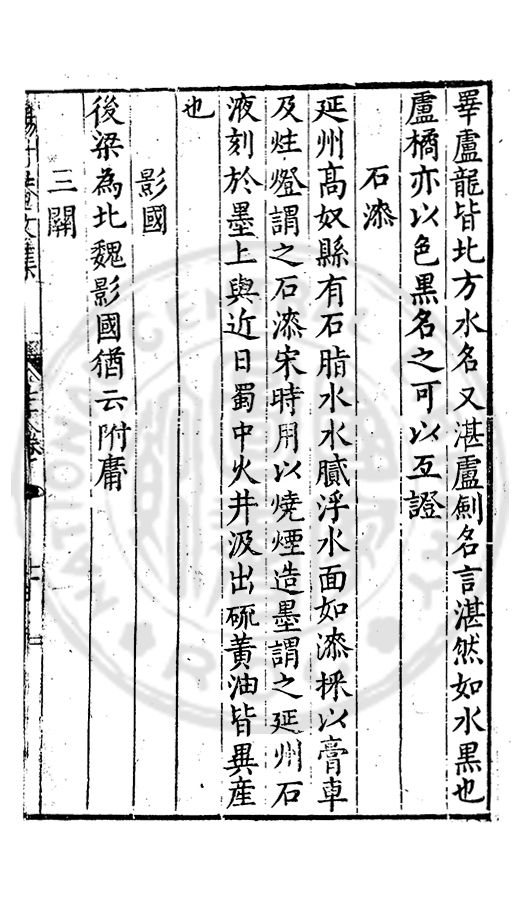 畢盧龍皆北方水名又湛盧劍名言湛然如水黒也
盧橘亦以色黒名之可以互證
石漆
延州髙奴縣有石脂水水膩浮水面如漆採以膏車
及炷燈謂之石漆宋時用以燒煙造墨謂之延州石
液刻於墨上與近日蜀中火井汲出硫黃油皆異産
也
影國
後梁為北魏影國猶云附庸
三關